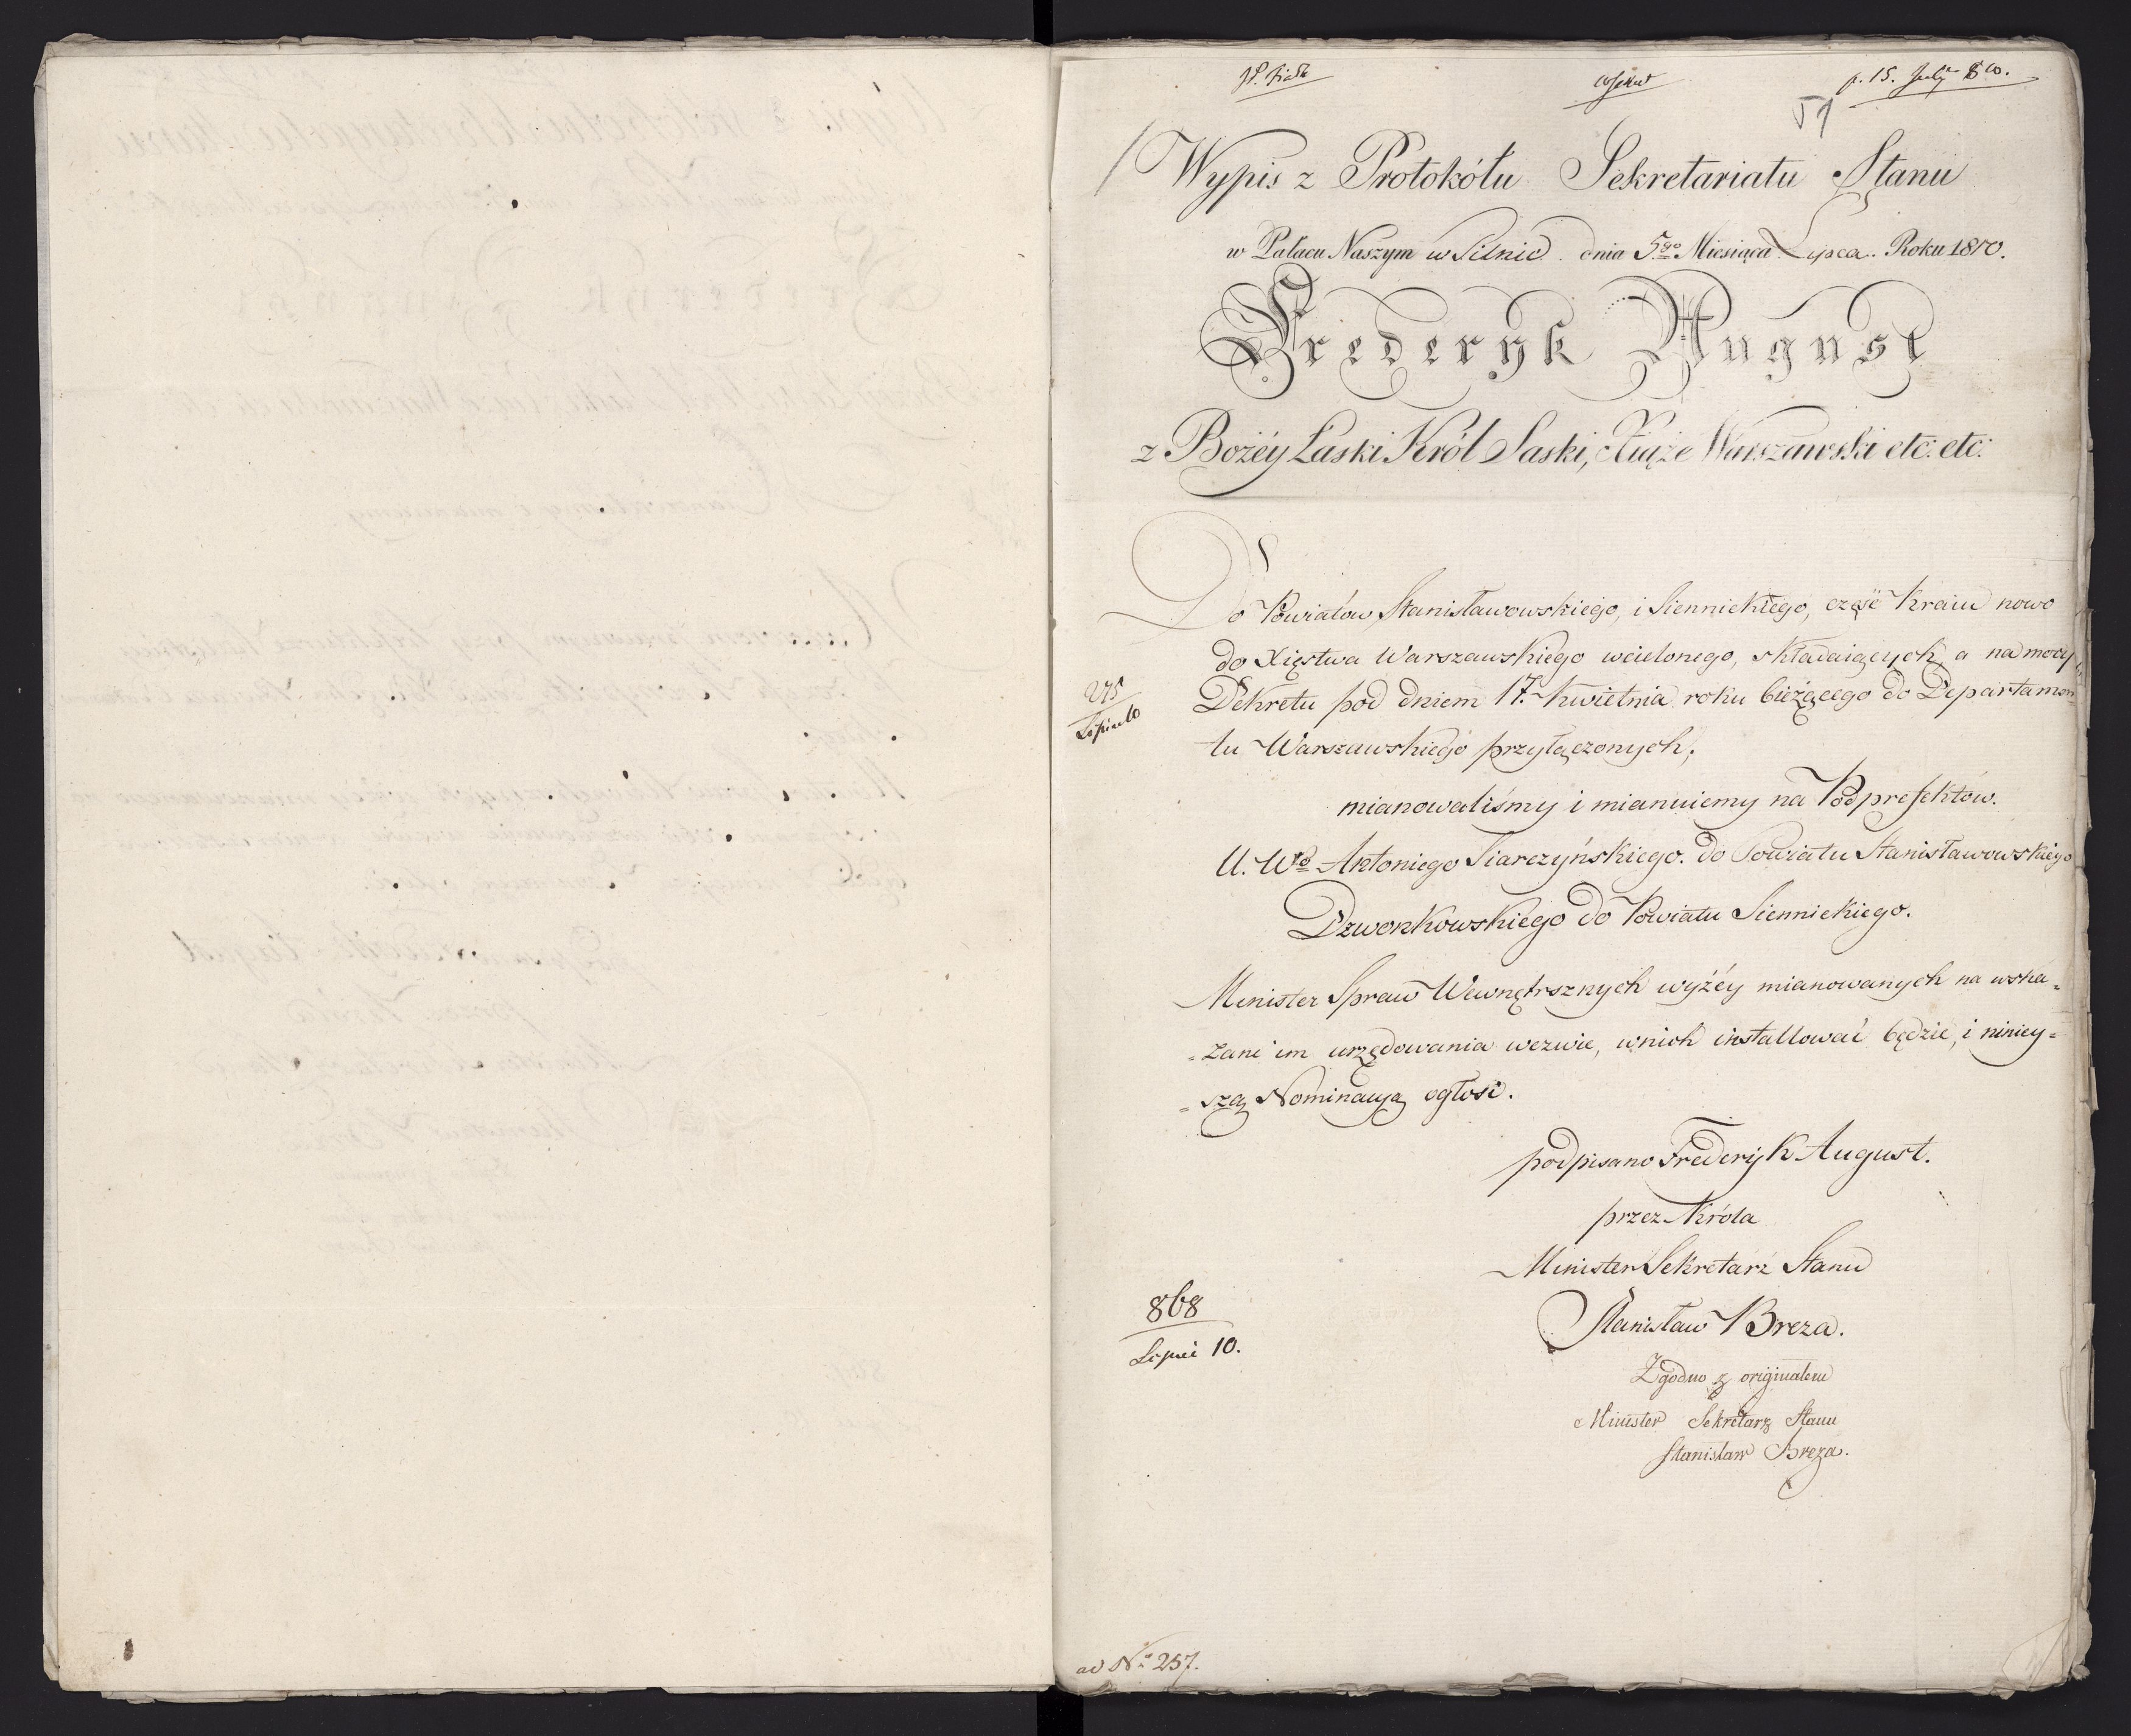 p. 15. July 810.
51
Wypis z Protokółu Sekretariatu Stanu
w Pałacu Naszym w Pilnic dnia 5go Miesiąca Lipca. Roku 1810.
Frederyk August
z Bożéy Łaski Król Saski, Xiąże Warszawski etc: etc:
Do Powiatów Stanisławowskiego, i Siennickiego, część Kraiu nowo
do Xięstwa Warszawskiego wcielonego, składaiących, a na mocy
Dekretu pod dniem 17. Kwietnia roku bieżącego do Departamen
tu Warszawskiego przyłączonych;
275
mianowaliśmy i mianuiemy na Podprefektów.
U. Wo Antoniego Siarczyńskiego. do Powiatu Stanisławowskiego
Dzwonkowskiego do Powiatu Siennickiego.
Minister Spraw Wewnętrsznych wyżéy mianowanych na wska=
=zane im urzędowania wezwie, w nich installować będzie, i niniey=
=szą Nominacyą ogłosi.
podpisano Frederyk August.
przez Króla
Minister Sekretarz Stanu
Stanisław Breza.
868
Lipca 10.
Zgodno z originałem
Minister Sekretarz Stanu
Stanisław Breza.
ad No 257.